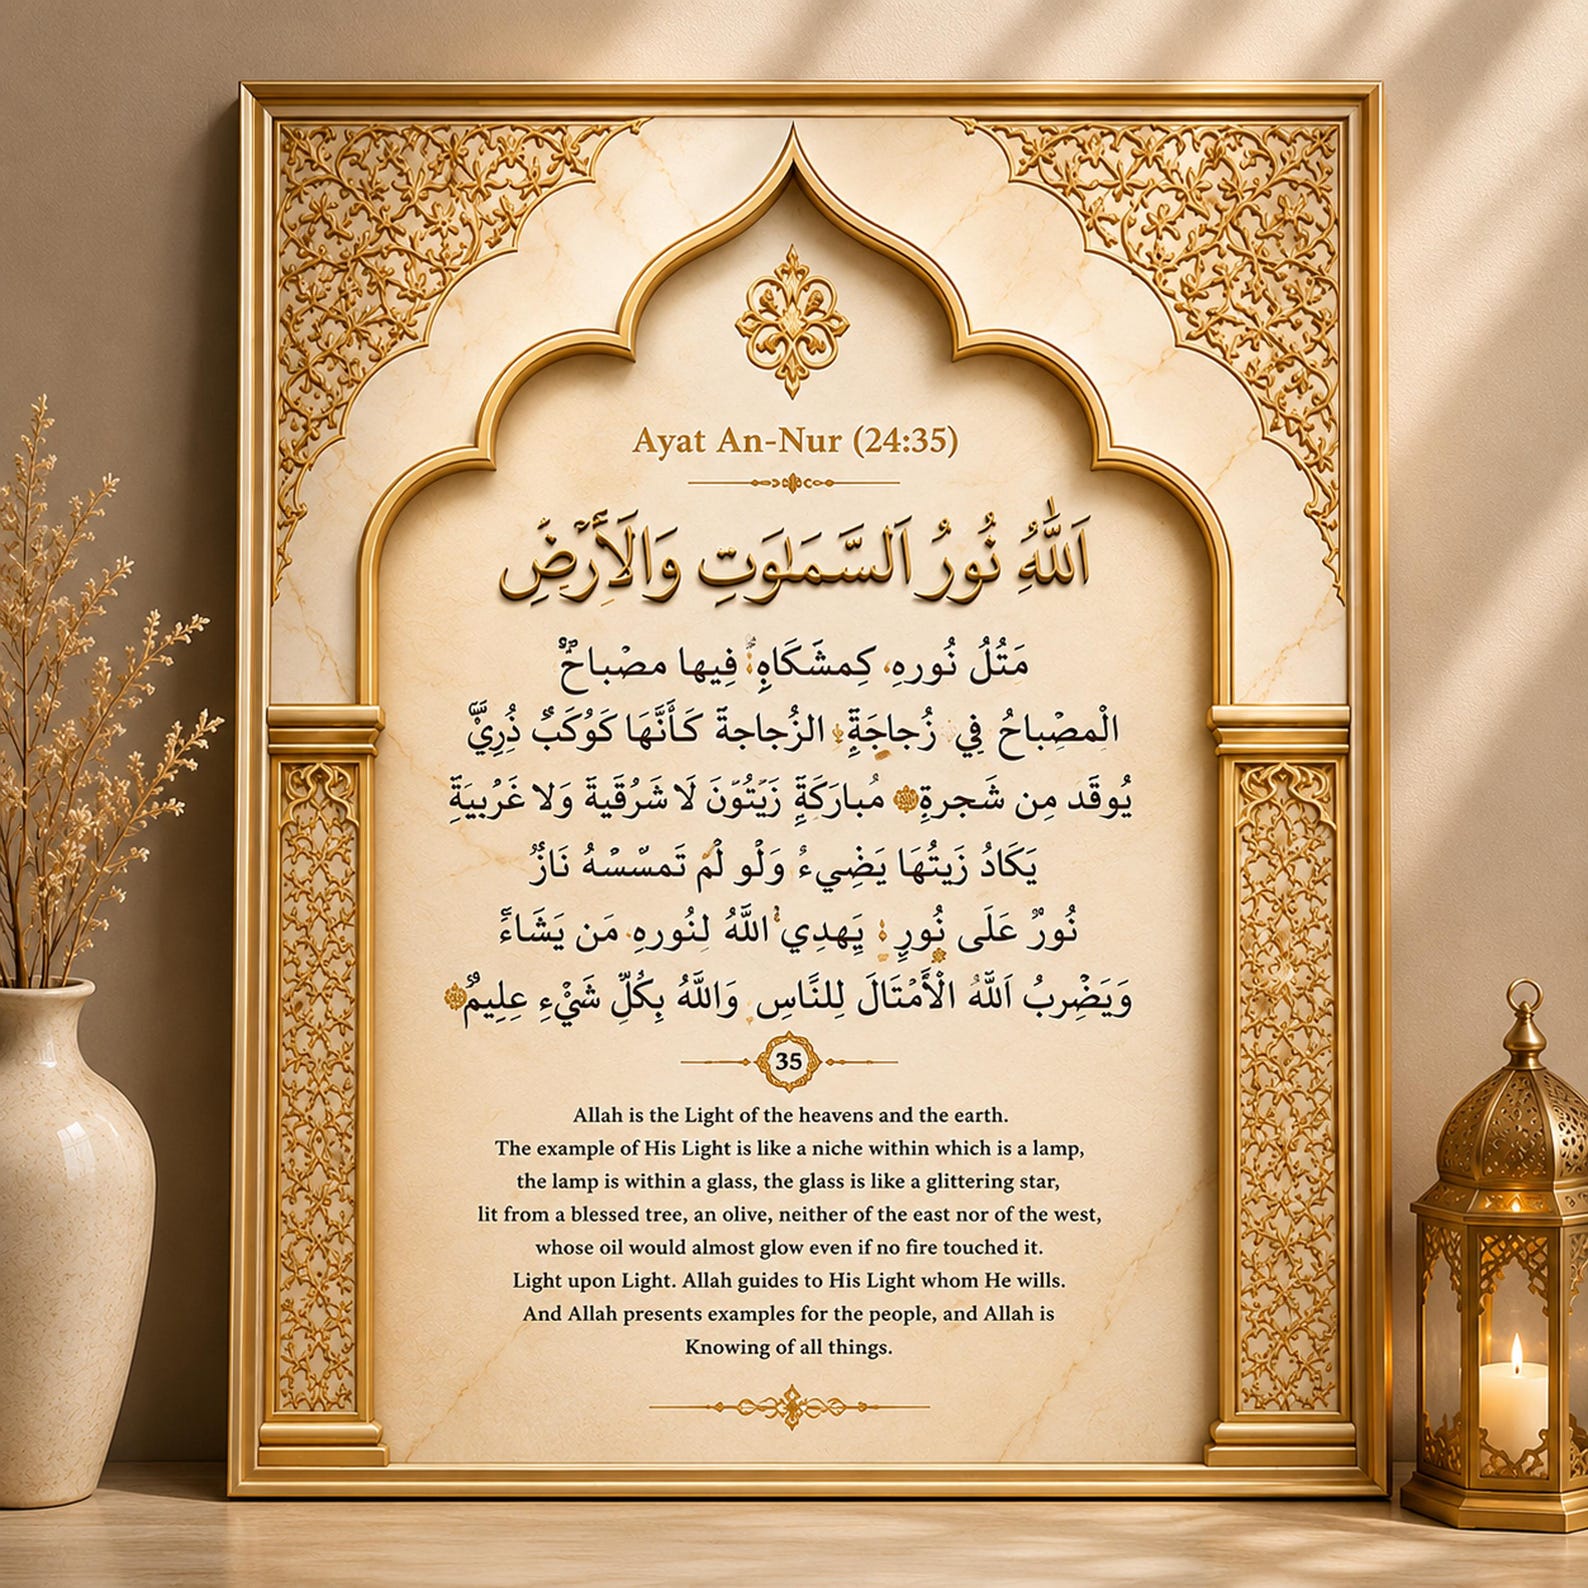 Ayat An-Nur (24:35)
اَللّٰهُ نُورُ اَلسَّمَٰوَتِ وَالَأَرَضِ
مَتُلُ نُورهِ، كِمشَكَاهٍ فِيها مصْباحٌ
الْمصْباحُ فِي زُجاجَةٍ الزُجاجةَ كَأَنَّهَا كَوُكَبٌ ذُرِيٌّ
يُوقَد مِن شَجرةٍ مُبارَكَةٍ زَيَتُوَنَ لَا شَرُقَيةَ وَلا غَرُبيَةٍ
يَكَادُ زَيتُهَا يَضِيءُ وَلَو لْمَ تَمسْسْهُ نَارٌ
نُورٌ عَلَى نُورٍ يَهدِي اللَّهُ لِنُورهِ مَن يَشَاءَُ
وَيَضْرِبُ اَللَّهُ الْأَمْتَالَ لِلنَّاسِ وَاللَّهُ بِكُلِّ شَيْءٍ عِلِيمٌ
35
Allah is the Light of the heavens and the earth.
The example of His Light is like a niche within which is a lamp,
the lamp is within a glass, the glass is like a glittering star,
lit from a blessed tree, an olive, neither of the east nor of the west,
whose oil would almost glow even if no fire touched it.
Light upon Light. Allah guides to His Light whom He wills.
And Allah presents examples for the people, and Allah is
Knowing of all things.